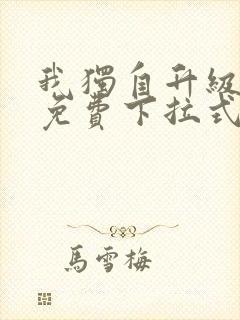 我獨自升級
免費下拉式
馬雪梅